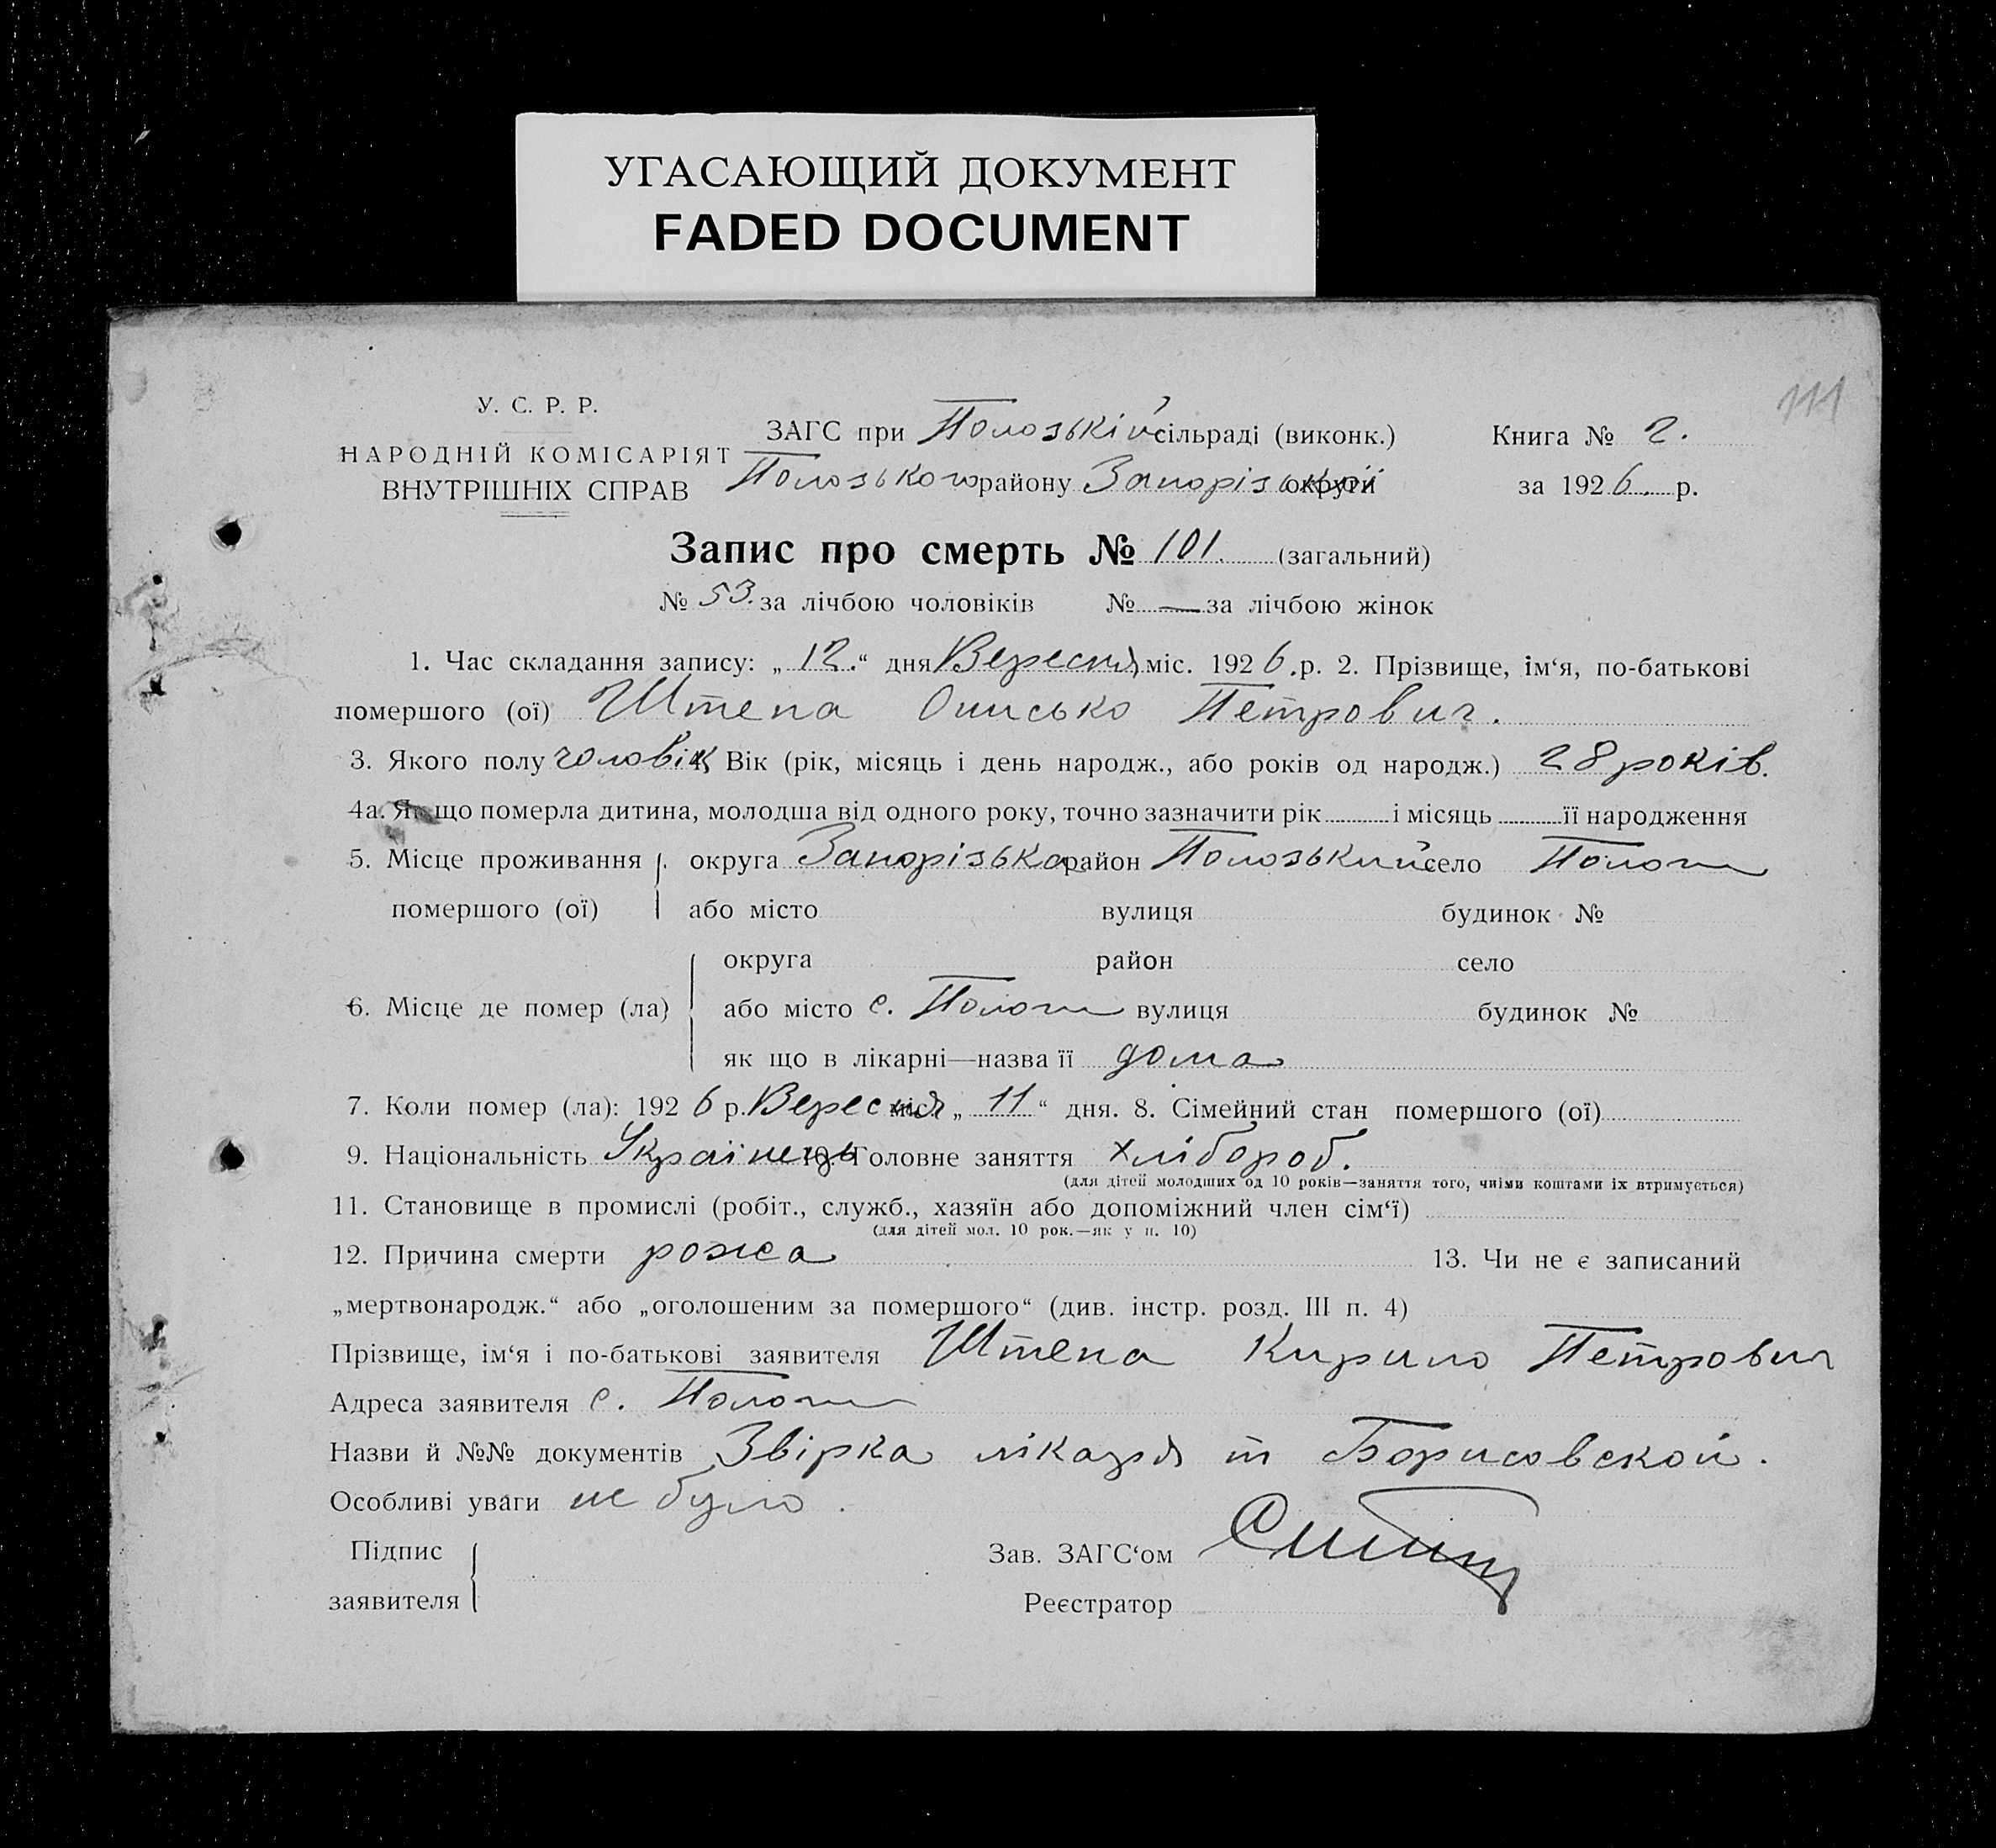 УГАСАЮЩИЙ ДОКУМЕНТ
FADED DOCUMENT
111
У. С. Р. Р.
НАРОДНІЙ КОМІСАРІЯТ
ВНУТРІШНІХ СПРАВ
ЗАГС при Полозькій сільраді (виконк.)
Полозького району Запорізької округи
Книга № 2.
за 1926. р.
Запис про смерть № 101. (загальний)
№ 53. за лічбою чоловіків № — за лічбою жінок
1. Час складання запису: „12.“ дня Вересня міс. 1926. р. 2. Прізвище, ім‘я, по-батькові
помершого (ої) Штепа Онисько Петрович.
3. Якого полу чоловік 4. Вік (рік, місяць і день народж., або років од народж.) 28 років.
4а. Як що померла дитина, молодша від одного року, точно зазначити рік і місяць її народження
5. Місце проживання округа Запорізька район Полозький село Пологи
помершого (ої) або місто вулиця будинок №
округа район село
6. Місце де помер (ла) або місто с. Пологи вулиця будинок №
як що в лікарні—назва її дома
7. Коли помер (ла): 1926 р. Вересня міс. „11“ дня. 8. Сімейний стан помершого (ої)
9. Національність Українець 10. Головне заняття хлібороб.
(для дітей молодших од 10 років—заняття того, чиїми коштами їх втримується)
11. Становище в промислі (робіт., служб., хазяїн або допоміжний член сім‘ї)
(для дітей мол. 10 рок.—як у п. 10)
12. Причина смерти рожа 13. Чи не є записаний
„мертвонародж.“ або „оголошеним за помершого“ (див. інстр. розд. III п. 4)
Прізвище, ім‘я і по-батькові заявителя Штепа Кирило Петрович
Адреса заявителя с. Пологи
Назви й №№ документів Звірка лікаря т Борисовской.
Особливі уваги не було.
Підпис
заявителя
Зав. ЗАГС‘ом
Реєстратор